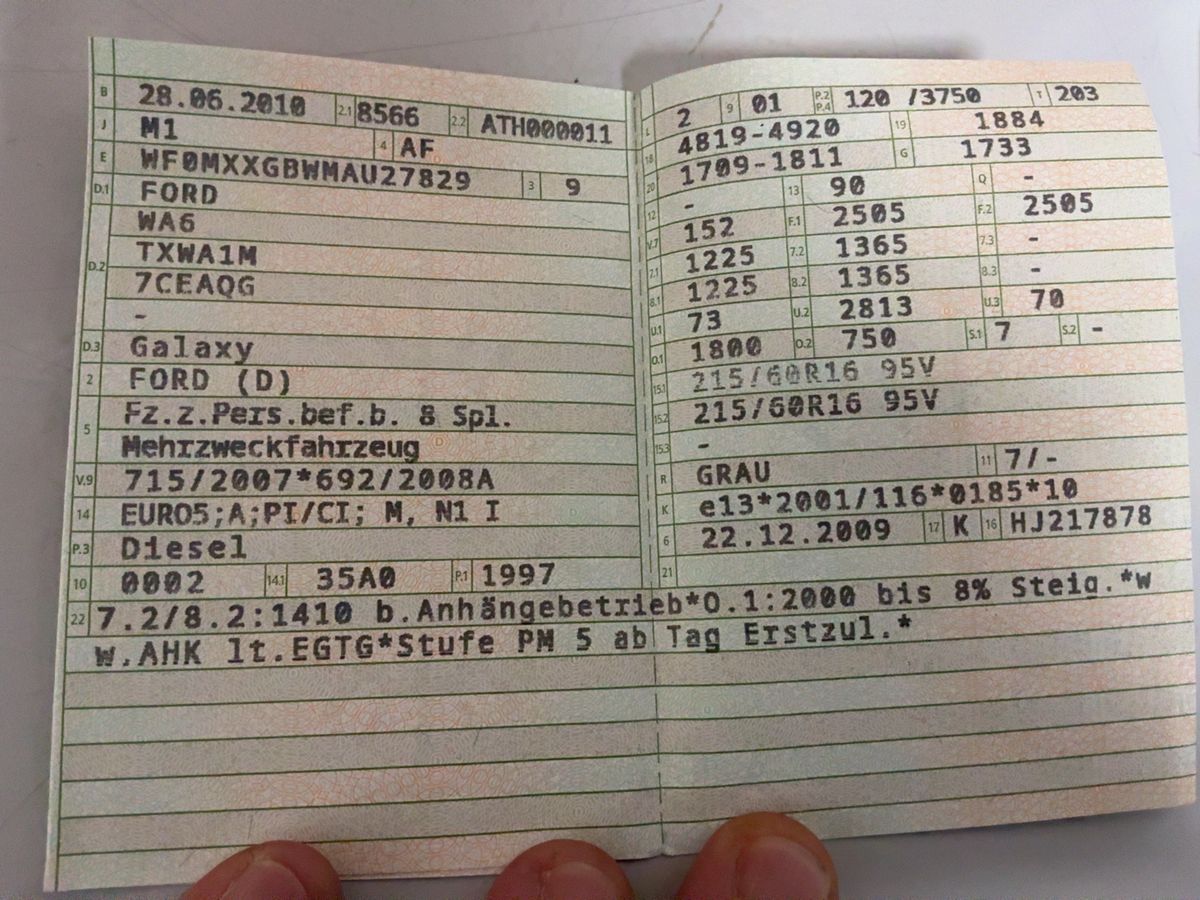 B 28.06.2010 2.1 8566 2.2 ATH000011
J M1 4 AF
E WF0MXXGBWMAU27829 3 9
D.1 FORD
D.2 WA6
TXWA1M
7CEAQG
-
D.3 Galaxy
2 FORD (D)
5 Fz.z.Pers.bef.b. 8 Spl.
Mehrzweckfahrzeug
V.9 715/2007*692/2008A
14 EURO5;A;PI/CI; M, N1 I
P.3 Diesel
10 0002 14.1 35A0 P.1 1997
L 2 9 01 P.2 P.4 120 /3750 T 203
18 4819-4920 19 1884
20 1709-1811 G 1733
12 - 13 90 Q -
V.7 152 F.1 2505 F.2 2505
7.1 1225 7.2 1365 7.3 -
8.1 1225 8.2 1365 8.3 -
U.1 73 U.2 2813 U.3 70
O.1 1800 O.2 750 S.1 7 S.2 -
15.1 215/60R16 95V
15.2 215/60R16 95V
15.3 -
R GRAU 11 7/-
K e13*2001/116*0185*10
6 22.12.2009 17 K 16 HJ217878
21
22 7.2/8.2:1410 b.Anhängebetrieb*O.1:2000 bis 8% Steig.*w
w.AHK lt.EGTG*Stufe PM 5 ab Tag Erstzul.*